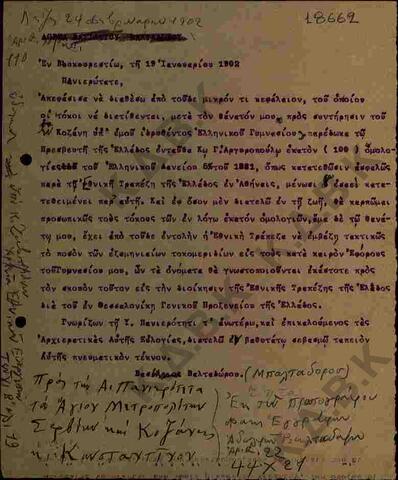 Λήψις 24 Φεβρουαρίου 1902
18662
Ἐν Βουκουρεστίῳ, τῇ 19 Ἰανουαρίου 1902
Πανιερώτατε,
Ἀπεφάσισα νά διαθέσω ἀπό τοῦδε μικρόν τι κεφάλαιον, τοῦ ὁποίου
οἱ τόκοι νά διετίθενται, μετά τόν θάνατόν μου, πρός συντήρησιν τοῦ
ἐν Κοζάνῃ ὑπ'ἐμοῦ ἱδρυθέντος Ἑλληνικοῦ Γυμνασίου, παρέδωκα τῷ
Πρεσβευτῇ τῆς Ἑλλάδος ἐνταῦθα Κῳ Γ. Ἀργυροπούλῳ ἑκατόν (100) ὁμολο-
γίας τοῦ Ἑλληνικοῦ Δανείου τοῦ 1881, ὅπως κατατεθῶσιν ἀσφαλῶς
παρά τῇ Ἐθνικῇ Τραπέζῃ τῆς Ἑλλάδος ἐν Ἀθήναις, μένωσι δ' ἐσαεί κατα-
τεθειμέναι παρ'αὐτῇ. Καί ἐφ' ὅσον μέν διατελῶ ἐν τῇ ζωῇ, θά καρποῦμαι
προσωπικῶς τούς τόκους τῶν ἐν λόγῳ ἑκατόν ὁμολογιῶν, ἅμα δέ τῷ θανά-
τῳ μου, ἔχει ἀπό τοῦδε ἐντολήν ἡ Ἐθνική Τράπεζα νά ἐμβάζῃ τακτικῶς
τό ποσόν τῶν ἑξαμηνιαίων τοκομεριδίων εἰς τούς κατά καιρόν Ἐφόρους
τοῦ Γυμνασίου μου, ὧν τά ὀνόματα θά γνωστοποιοῦνται ἑκάστοτε πρός
τόν σκοπόν τοῦτον εἰς τήν διοίκησιν τῆς Ἐθνικῆς Τραπέζης τῆς Ἑλλάδος
διά τοῦ ἐν Θεσσαλονίκῃ Γενικοῦ Προξενείου τῆς Ἑλλάδος.
Γνωρίζων τῇ Ὑ. Πανιερότητι τ'ἀνωτέρω, καί ἐπικαλούμενος τάς
Ἀρχιερατικάς Αὐτῆς Εὐλογίας, διατελῶ ἐν βαθυτάτῳ σεβασμῷ ταπεινόν
Αὐτῆς πνευματικόν τέκνον.
Βαλταδώρου. (Μπαλταδόρος)
Πρός τήν Α. Πανιερότητα
τόν Ἅγιον Μητροπολίτην
Σερβίων καί Κοζάνης
κ. Κωνσταντῖνον
Ἐκ τῶν Πρωτογράφων
Ἀριθ. 22
44 Χ 27